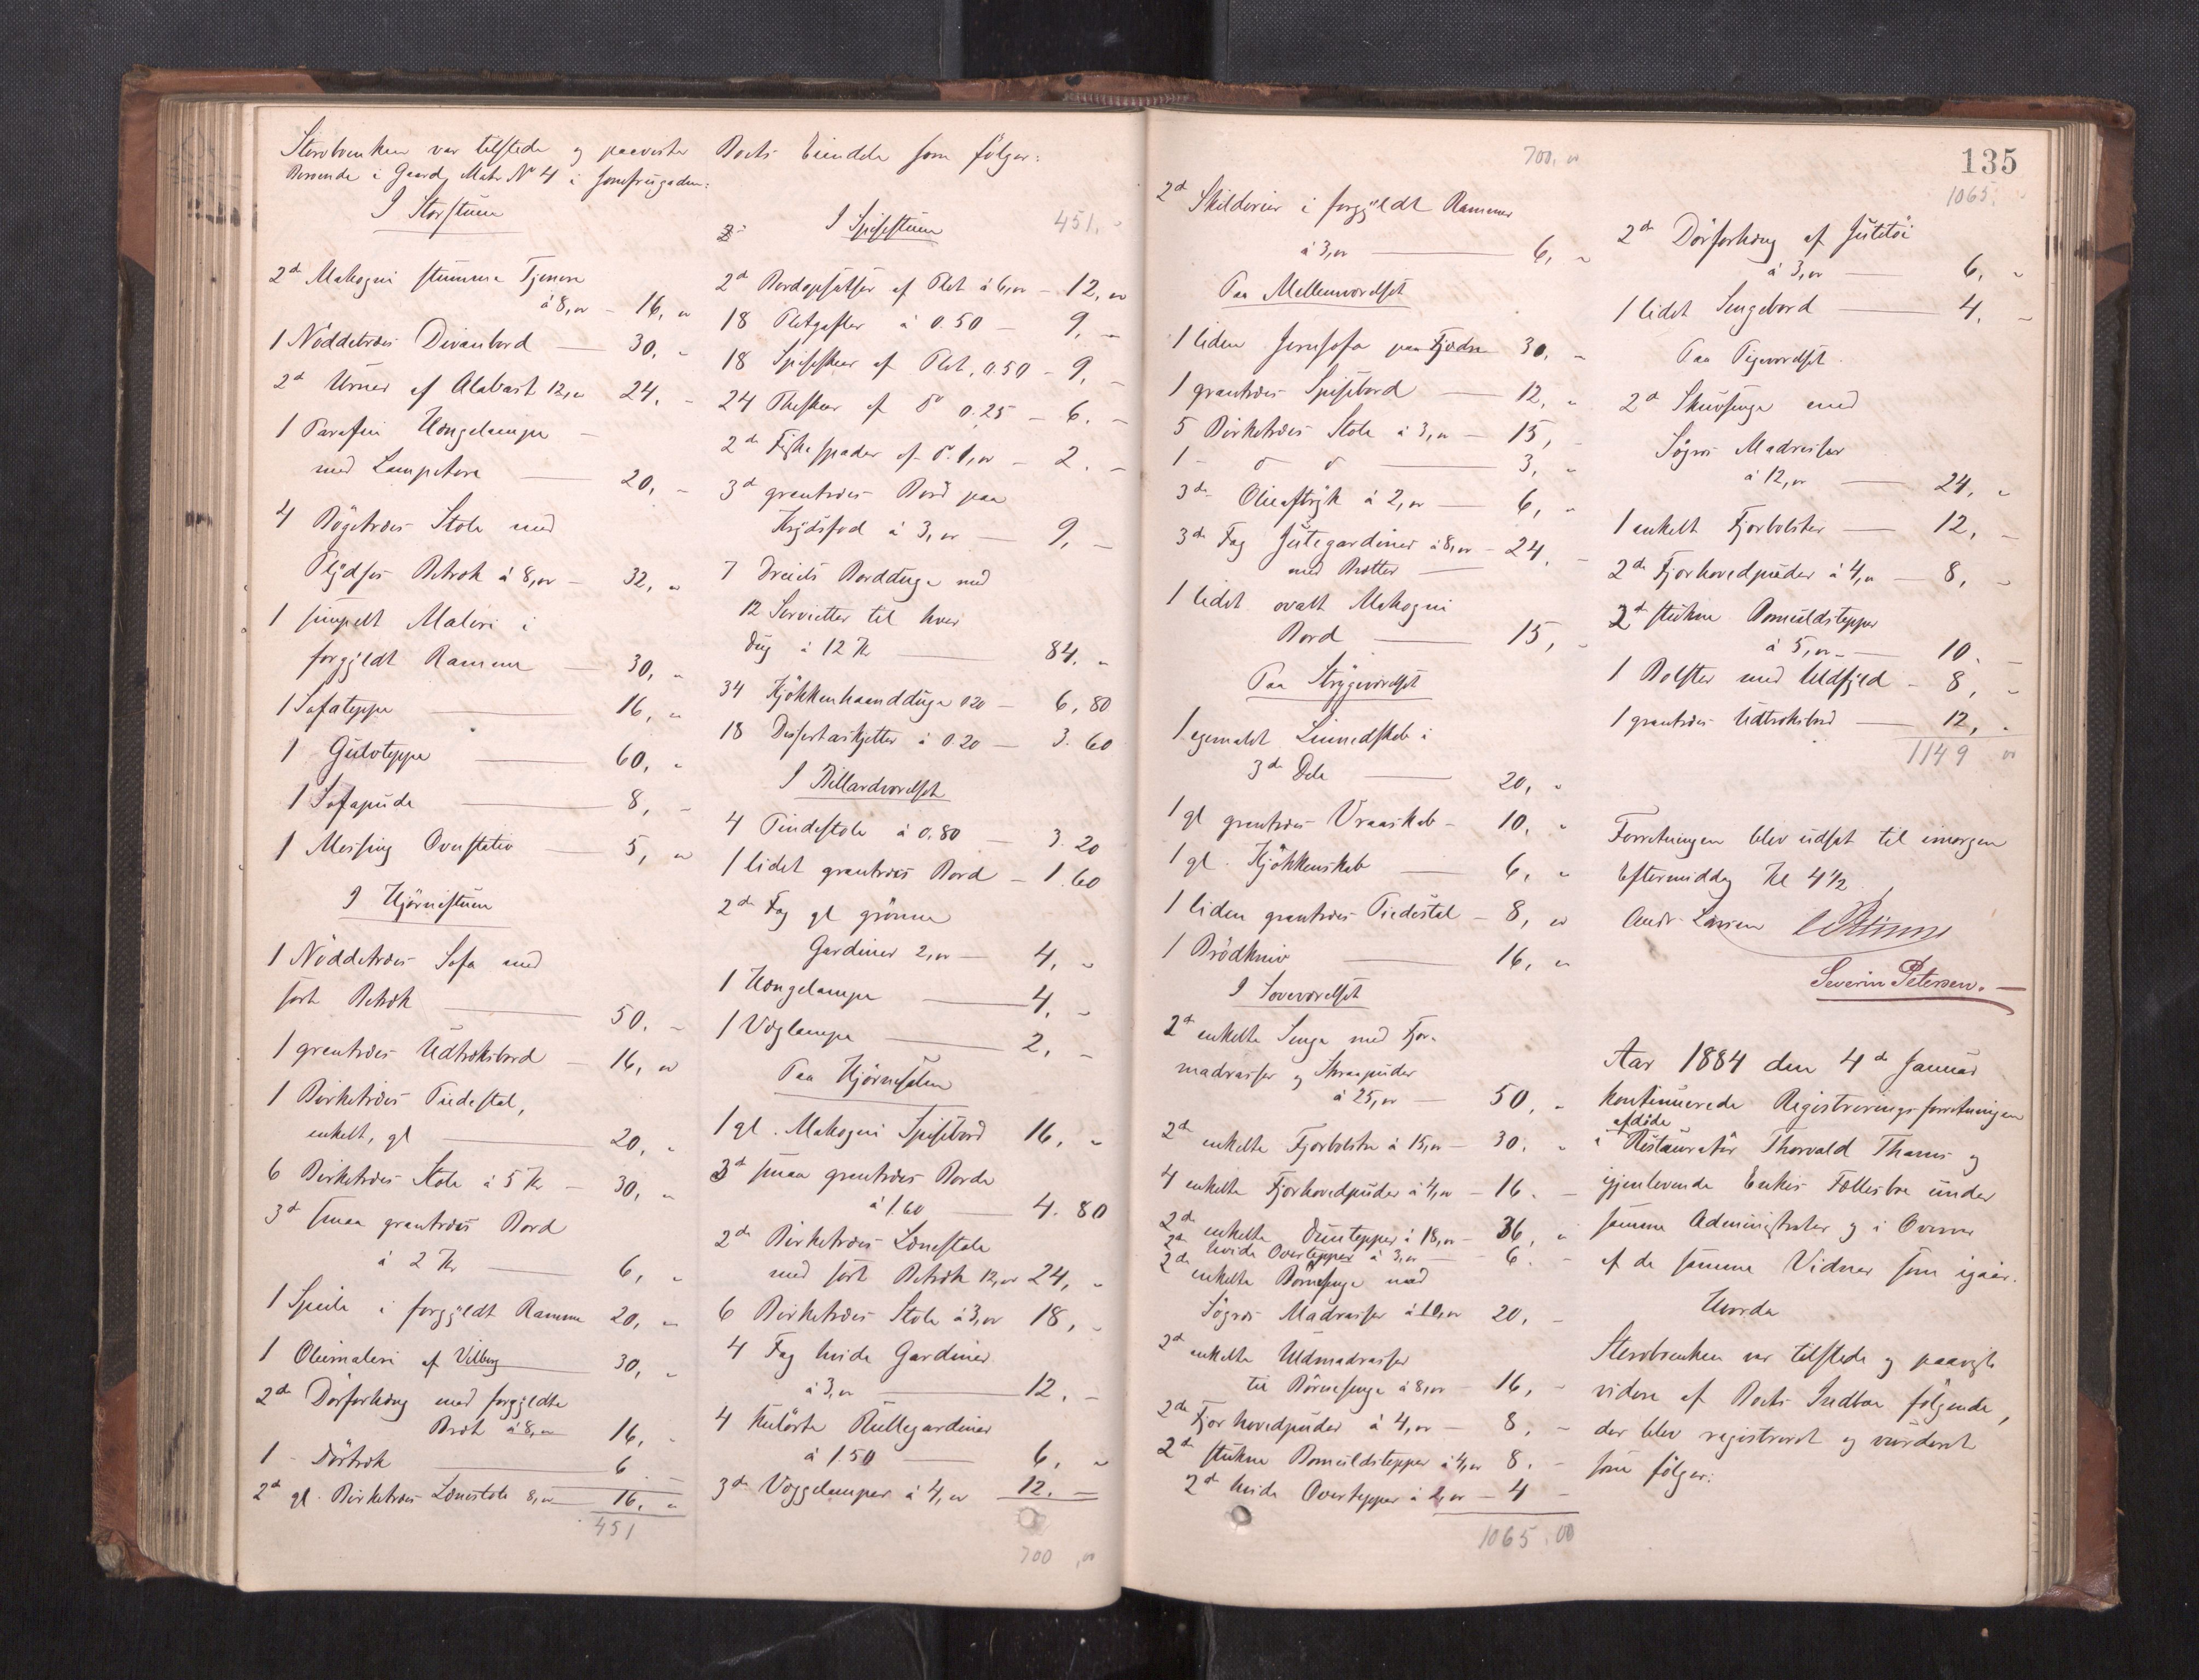 Stervboenken var tilstede og paaviste Boets Eiendele som følger:
Beroende i Gaard, Matr. No 4 i Jomfrugaden:
I Storstuen
2de Mahogni stumme Tjenere
à 8,00 — 16, 00
1 Nöddetræs Divanbord — 30, "
2de Urner af Alabast 12,00 24, -
1 Parafin Hængelampe —
med Lampetere — 20, -
4 Bøgetræs Stole med
Plydses Betræk à 8,00 — 32, "
1 simpelt Maleri i
forgyldt Ramme — 30, "
1 Sofateppe — 16, "
1 Gulvteppe — 60, "
1 Sofapude — 8, -
1 Messing Ovnstativ — 5, 00
I Hjörnestuen
1 Nöddetræs Sofa med
sort Betræk — 50. -
1 grantræs Udtræksbord — 16, 00
1 Birketræs Piedestal,
enkelt, gl — 20, "
6 Birketræs Stole à 5 Kr — 30, "
3de smaa grantræs Bord
à 2 Kr — 6, "
1 Speile i forgyldt Ramme 20, "
1 Oliemaleri af Vilberg — 30, "
2de Dörforhæng med forgyldte
Bræt à 8,00 16, -
1 - Dörtræk — 6 -
2de gl. Birketræs Lænestole 8,00 16, "
451
I Spisestuen 451. -
2de Bordopsatser af Plet à 6,00 — 12, 00
18 Pletgafler à 0.50 — 9, -
18 Spiseskeer af Plet. 0.50 — 9, -
24 Theskeer af do 0.25 — 6. -
2de Fiskespader af do. 1,00 — 2. -
3de grantræs Bord paa
Krydsfod à 3,00 — 9, -
7 Dreiels Bordduge med
12 Servietter til hver
Dug à 12 Kr — 84. "
34 Kjökkenhaandduge 0 20 — 6, 80
18 Dessertaskjetter à 0.20 — 3. 60
I Billardværelset
4 Pindestole à 0.80 — 3. 20
1 lidet grantræs Bord — 1. 60
2de Fag gl grönne
Gardiner 2,00 — 4, "
1 Hængelampe — 4, -
1 Væglampe — 2, -
Paa Hjörnesalen
1 gl. Mahogni Spisebord 16, "
3de smaa grantræs Borde
à 1.60 — 4. 80
2de Birketræs Lænestole
med sort Betræk 12,00 24, "
6 Birketræs Stole à 3,00 18, -
4 Fag hvide Gardiner
à 3,00 — 12. -
4 kulörte Rullegardiner
à 1.50 — 6, "
3de Væggelamper à 4,00 12. -
700 ,00
135
700, 00
2de Skilderier i forgyldt Rammer
à 3,00 — 6, "
Paa Mellemværelset
1 liden Jernsofa paa Fjædre 30, -
1 grantræs Spisebord — 12, "
5 Birketræs Stole à 3,00 — 15, -
1 - do do — 3, "
3de Olieaftryk à 2,00 — 6, "
3de Fag Jutegardiner à 8,00 — 24, -
med Brætter —
1 lidet ovalt Mahogni
Bord — 15, -
Paa Strygeværelset
1 egemalt Linnedskab i
3de Dele — 20, "
1 gl grantræs Vraaskab — 10, "
1 gl. Kjökkenskab — 6, "
1 liden grantræs Piedestal — 8, 00
1 Brödkniv — 16, 00
I Soveværelset
2de enkelte Senge med Fjær-
madrasser og Skraapuder
à 25,00 — 50, "
2de enkelte Fjærbolstre à 15,00 — 30. "
4 enkelte Fjærhovedpuder à 4,00 — 16. -
2de enkelte Duntepper à 18,00 — 36, "
2de hvide Overtepper à 3,00 — 6. -
2de enkelte Börnesenge med
Søgræs Madrasser à 10,00 20, -
2de enkelte Uldmadrasser
til Börnesenge à 8,00 — 16, -
2de Fjær hovedpuder à 4,00 — 8, -
2de stukne Bomuldstepper à 4,00 8. -
2de hvide Overtepper à 2,00 — 4 -
1065.00
1065.
2de Dörforhæng af Jutetöi
à 3,00 — 6, "
1 lidet Sengebord — 4, -
Paa Pigeværelset.
2de Skuvsenge med
Søgræs Madrasser
à 12,00 — 24, "
1 enkelt Fjærbolster — 12, -
2de Fjærhovedpuder à 4,00 — 8, "
2de stukne Bomuldstepper
à 5,00 — 10. -
1 Bolster med Uldfyld — 8, "
1 grantræs Udtræksbord — 12, "
1149 00
Forretningen blev udsat til imorgen
Eftermiddag Kl 4½
Andr. Larsen
Severin Petersen. —
Aar 1884 den 4de Januar
kontinuerede Registreringsforretningen
afdöde
i Restauratör Thorvald Thams og
gjenlevende Enkes Fællesbo under
samme Administrator og i Overvær
af de samme Vidner som igaar.
Hvorda
Stervboenken var tilstede og paaviste
videre af Boets Indboe følgende,
der blev registreret og vurderet
som følger: